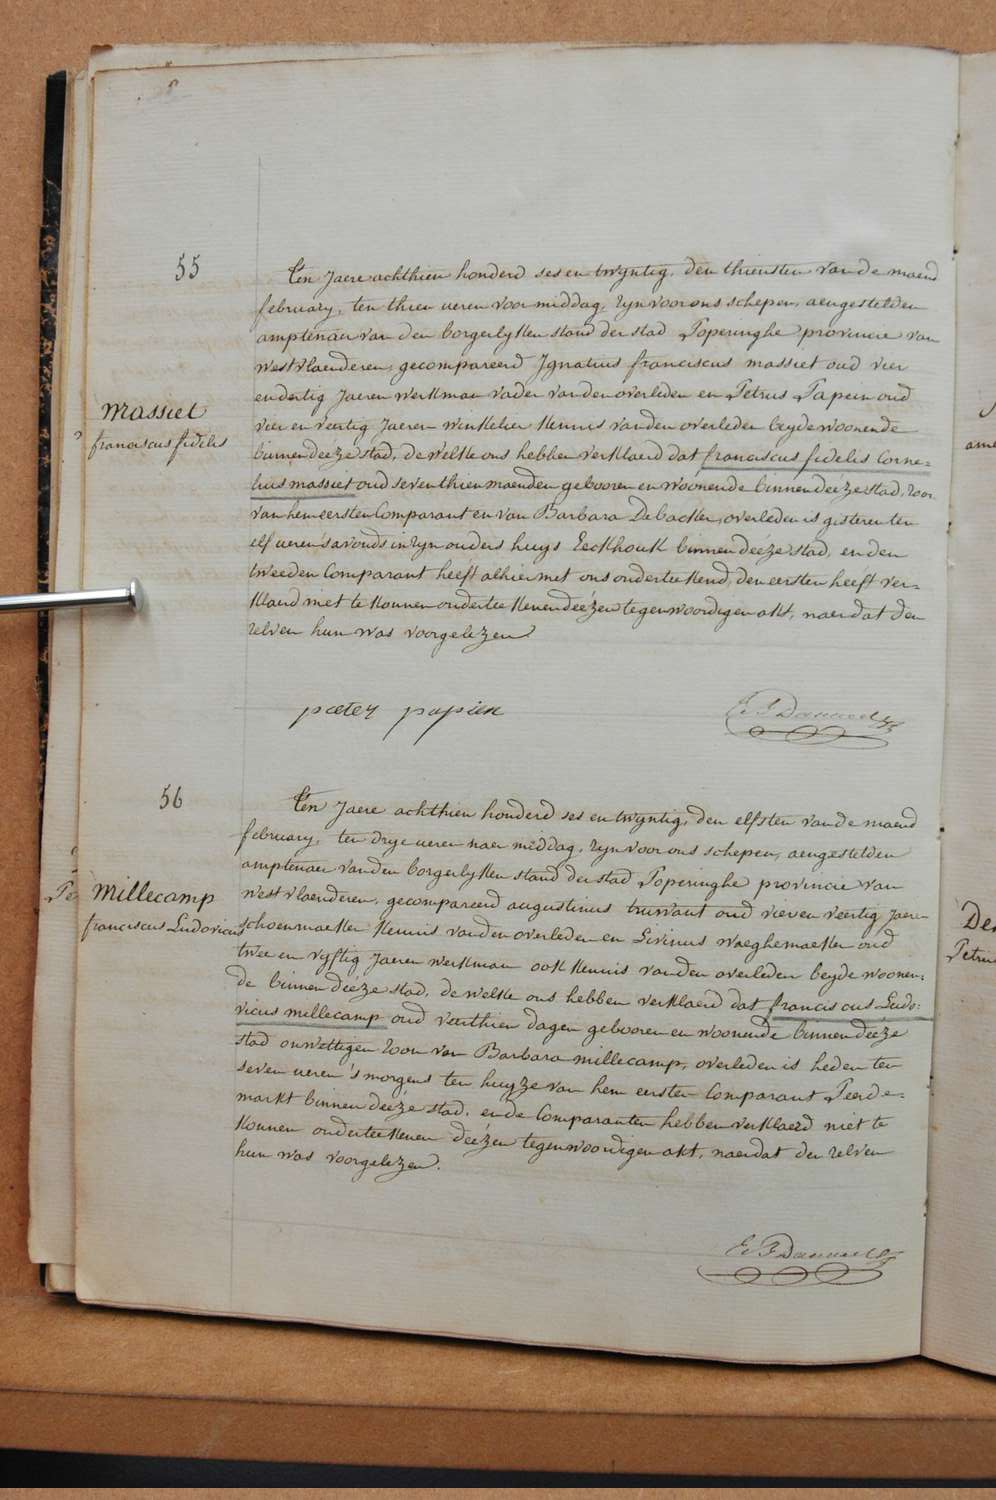 55
Ten jaere achthien honderd ses en twyntig, den thiensten van de maend
february, ten thien ueren voor middag, zyn voor ons schepen, aengestelden
amptenaer van den borgerlyken stand der stad Poperinghe provincie van
westvlaenderen, gecompareerd Ignatius franciscus massiet oud vier
en dertig jaeren werkman vader van den overleden en Petrus Papein oud
vier en veertig jaeren winkelier kennis van den overleden beyde woonende
binnen deéze stad, de welke ons hebben verklaerd dat franciscus fidelis Corne=
massiet
franciscus fidelis
lius massiet oud seventhien maenden gebooren en woonende binnen deeze stad, zoon
van hem eersten Comparant en van Barbara Debacker, overleden is gisteren ten
elf ueren 's avonds in zyn ouders huys Eeckhouk binnen deéze stad, en den
tweeden Comparant heeft alhier met ons onderteekend, den eersten heéft ver=
klaerd niet te konnen onderteekenen deézen tegenwoordigen akt, naer dat den
zelven hun was voorgelezen
pieter papien
56
Ten jaere achthien honderd ses en twyntig, den elfsten van de maend
february, ten drye ueren naer middag, zyn voor ons schepen, aengestelden
amptenaer van den borgerlyken stand der stad Poperinghe provincie van
westvlaenderen, gecompareerd augustinus truwant oud vier en veertig jaeren
millecamp
franciscus Ludovicus
schoenmaeker kennis van den overleden en Livinus waeghemaeker oud
twee en vyftig jaeren werkman ook kennis van den overleden beyde woonen=
de binnen deéze stad, de welke ons hebben verklaerd dat franciscus Ludo=
vicus millecamp oud veerthien dagen gebooren en woonende binnen deéze
stad onwettigen zoon van Barbara millecamp, overleden is heden ten
seven ueren 's morgens ten huyze van hem eersten Comparant Peerde=
markt binnen deéze stad, en de Comparanten hebben verklaerd niet te
konnen onderteekenen deézen tegenwoordigen akt, naer dat den zelven
hun was voorgelezen.